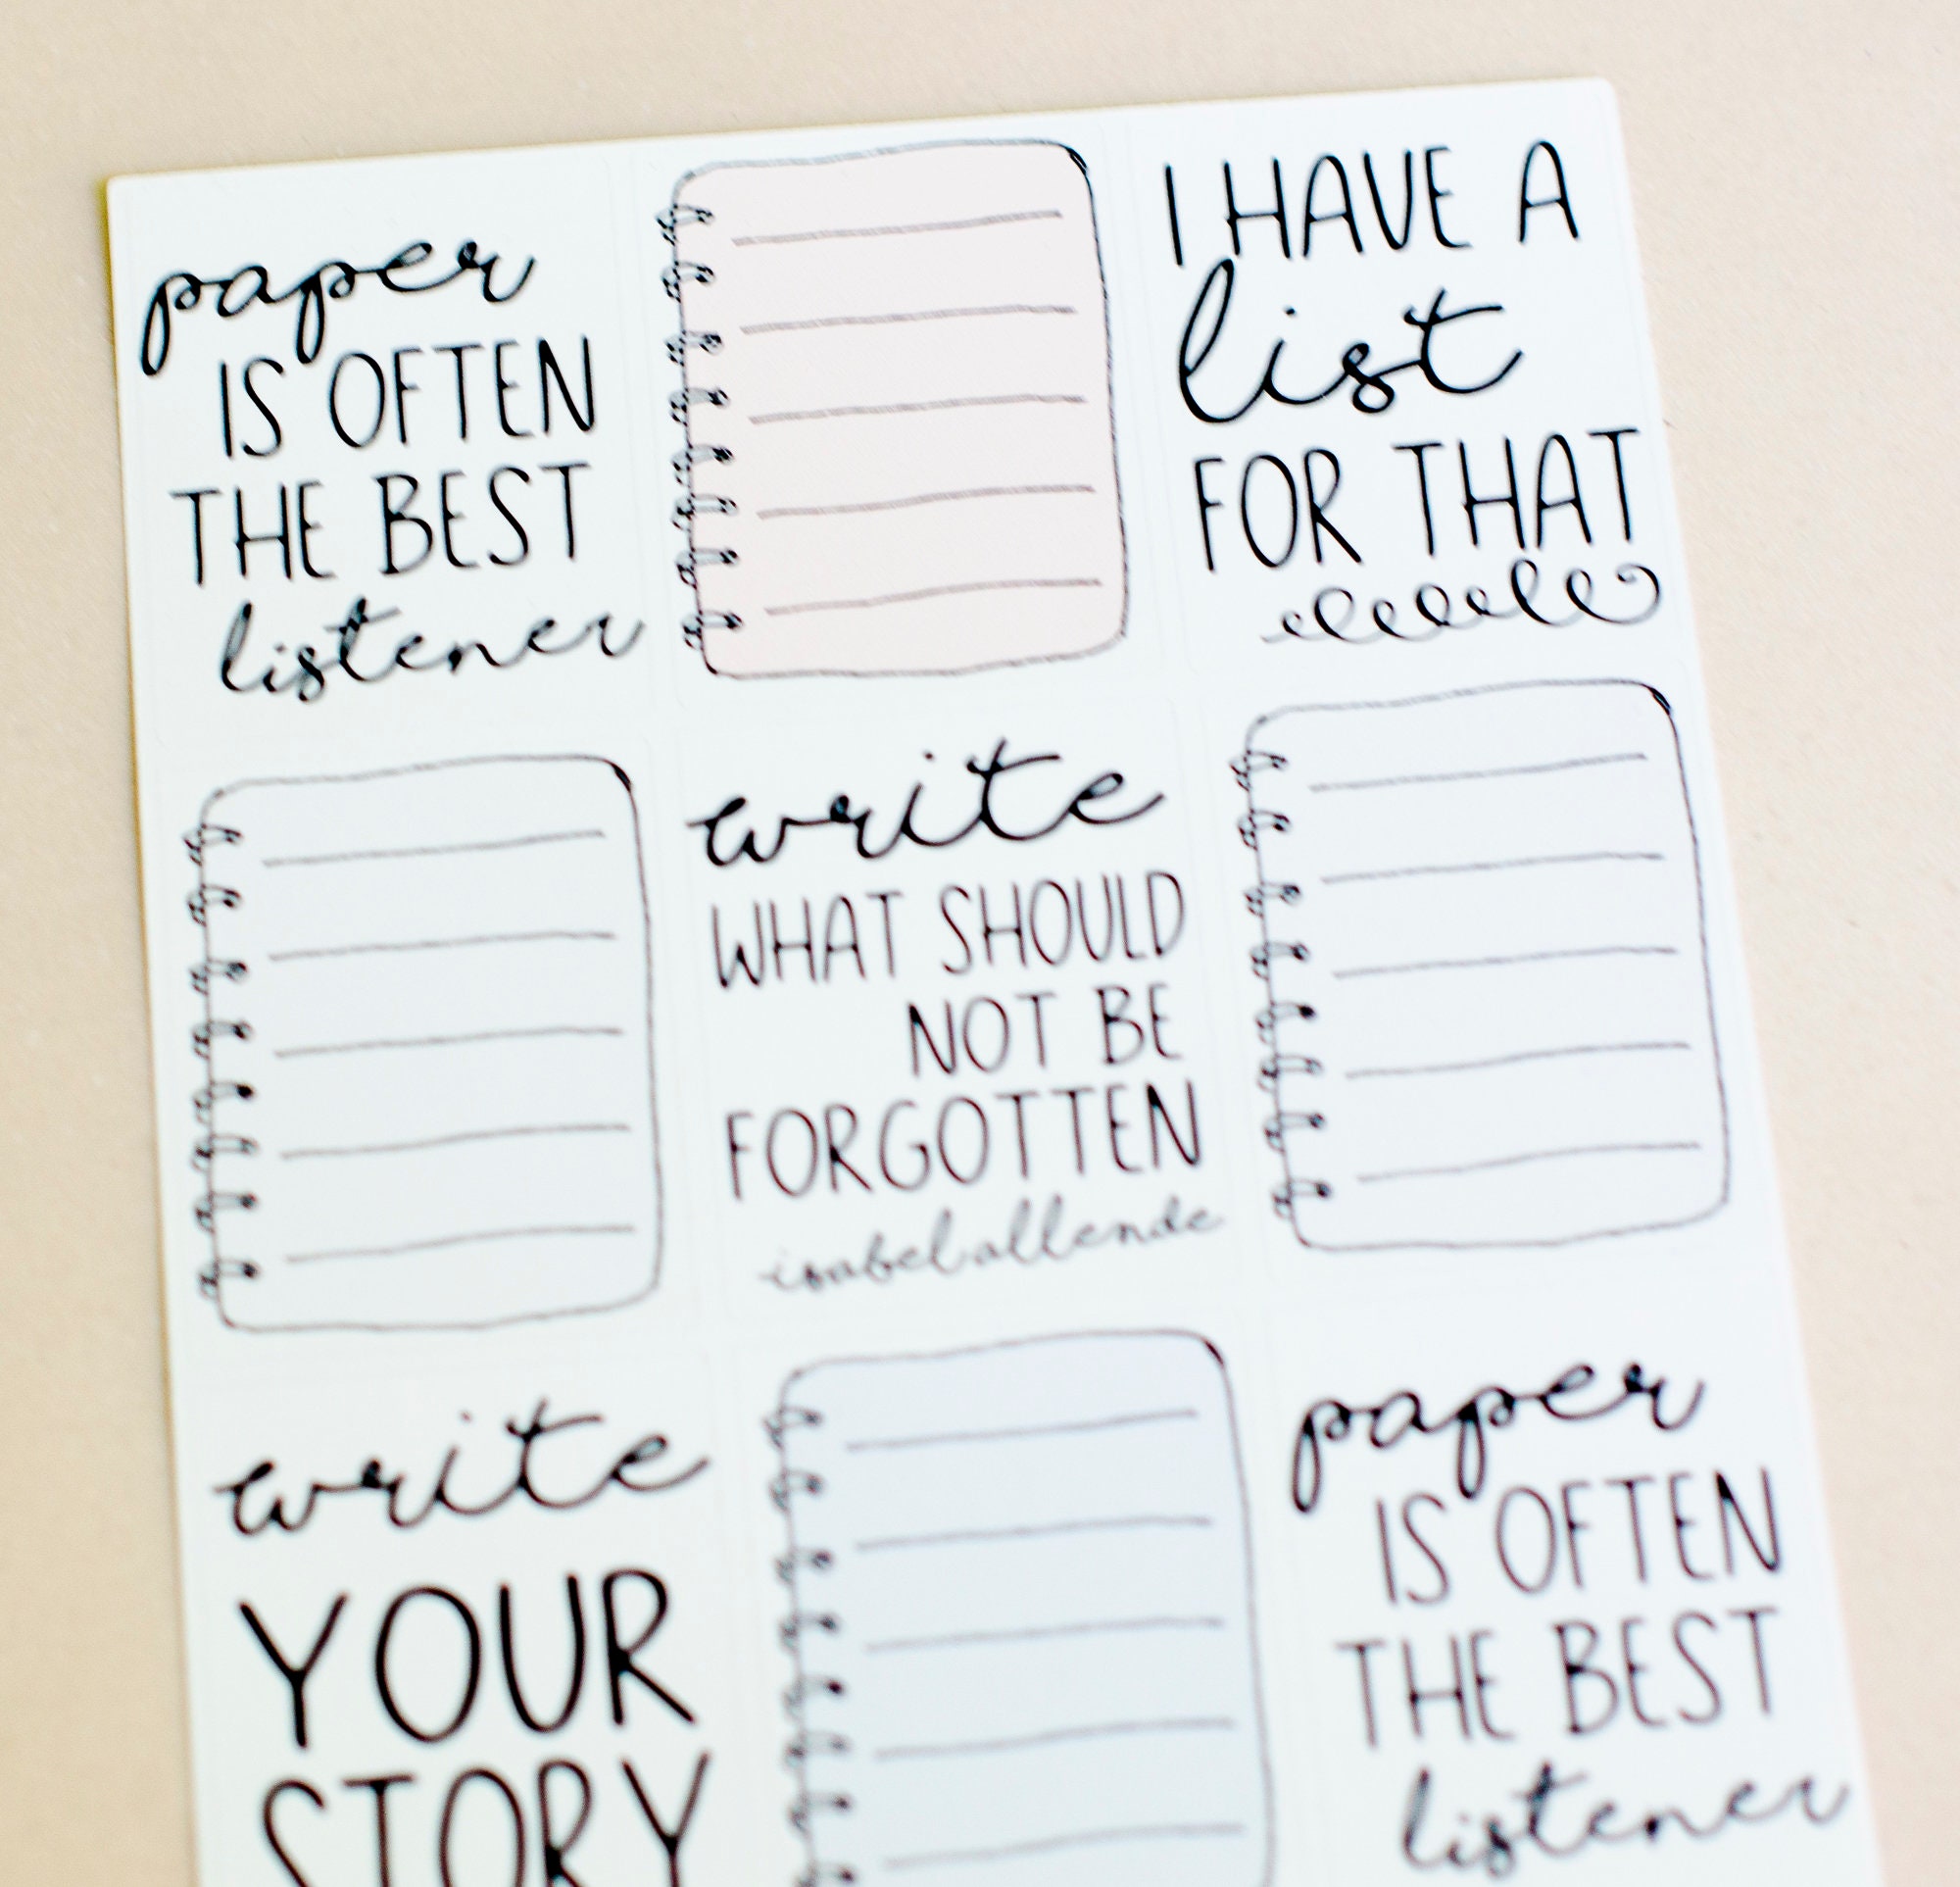 paper
IS OFTEN
THE BEST
listener
I HAVE A
list
FOR THAT
write
WHAT SHOULD
NOT BE
FORGOTTEN
isabel allende
write
YOUR
STORY
paper
IS OFTEN
THE BEST
listener